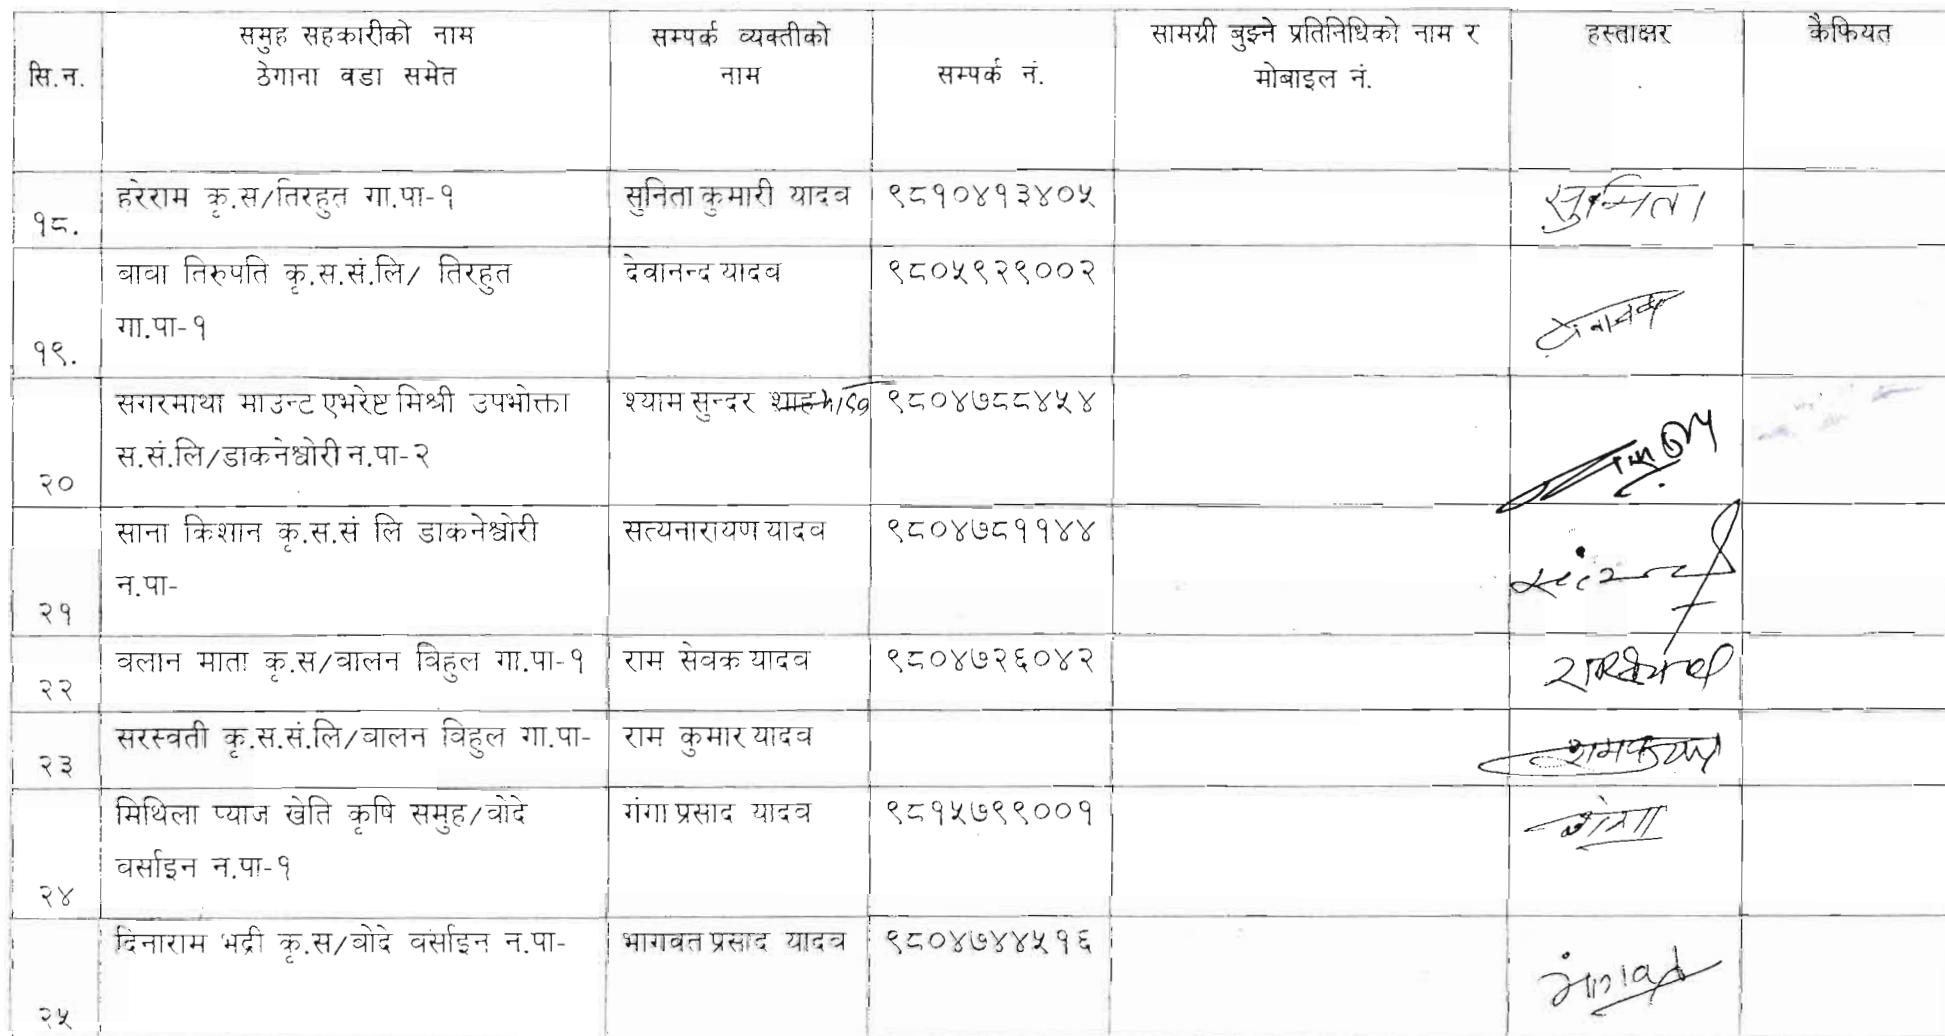 सि.न.
समुह सहकारीको नाम
ठेगाना वडा समेत
सम्पर्क व्यक्तीको
नाम
सम्पर्क नं.
सामग्री बुझ्ने प्रतिनिधिको नाम र
मोबाइल नं.
हस्ताक्षर
कैफियत
१८.
हरेराम कृ.स/तिरहुत गा.पा-१
सुनिता कुमारी यादव
९८१०४१३४०५
सुनिता
१९.
बावा तिरुपति कृ.स.सं.लि/ तिरहुत
गा.पा-१
देवानन्द यादव
९८०५९२९००२
२०
सगरमाथा माउन्ट एभरेष्ट मिश्री उपभोक्ता
स.सं.लि/डाकनेश्वोरी न.पा-२
श्याम सुन्दर
९८०४७८८४५४
२१
साना किशान कृ.स.सं लि डाकनेश्वोरी
न.पा-
सत्यनारायण यादव
९८०४७८११४४
२२
वलान माता कृ.स/वालन विहुल गा.पा-१
राम सेवक यादव
९८०४७२६०४२
२३
सरस्वती कृ.स.सं.लि/वालन विहुल गा.पा-
राम कुमार यादव
२४
मिथिला प्याज खेति कृषि समुह/वोदे
वर्साइन न.पा-१
गंगा प्रसाद यादव
९८१५७९९००१
२५
दिनाराम भद्री कृ.स/वोदे वर्साइन न.पा-
भागवत प्रसाद यादव
९८०४७४४५१६